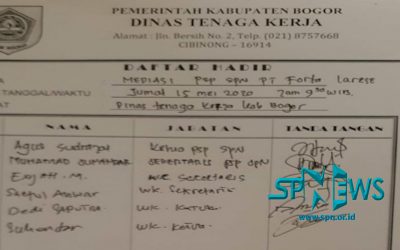 PEMERINTAH KABUPATEN BOGOR
DINAS TENAGA KERJA
Alamat : Jln. Bersih No. 2, Telp. (021) 8757668
CIBINONG - 16914
DAFTAR HADIR
MEDIASI PSP SPN PT Forta Larese
TANGGAL/WAKTU Jumat 15 mei 2020 Jam 9 30 WIB.
AT Dinas tenaga kerja kab Bogor
NAMA JABATAN TANDA TANGAN
Agus Sudrajat Ketua PSP SPN
MOHAMAD SEKRETARIS PSP SPN
WK Sekretaris
Saepul Anwar WK. Sekretaris
Dedi SAPUTRA WK. KETUA
Suhandar WK. KETUA.
SPNEWS
www.spn.or.id